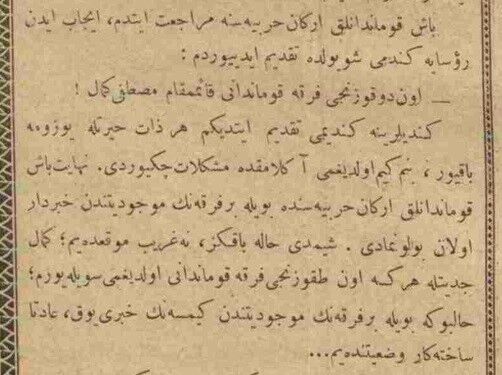 باش قوماندانلق اركان حربيه‌سنه مراجعت ايتدم، ايجاب ايدن
رؤسايه كندمى شويولده تقديم ايدييوردم :
— اون‌دوقوزنجى فرقه قوماندانى قائممقام مصطفى كمال !
كنديلرينه كنديمى تقديم ايتديكم هر ذات حيرتله يوزومه
باقيور ، بنم كيم اولديغمى آ كلامقده مشكلات چكيوردى. نهايت باش
قوماندانلق اركان حربيه‌سنده بويله برفرقه‌نك موجوديتندن خبردار
اولان بولونمادى . شيمدى حاله باقكز، نه‌غريب موقعده‌يم؛ كمال
جديتله هركسه اون طقوزنجى فرقه قوماندانى اولديغمى سويله‌يورم؛
حالبوكه بويله برفرقه‌نك موجوديتندن كيمسه‌نك خبرى يوق، عادتا
ساخته‌كار وضعيتنده‌يم...